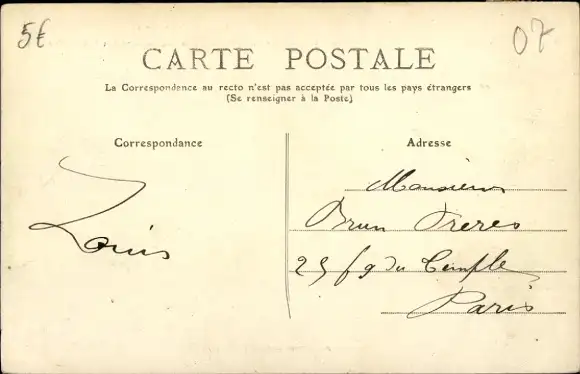 5€
07
CARTE POSTALE
La Correspondance au recto n'est pas acceptée par tous les pays étrangers
(Se renseigner à la Poste)
Correspondance
Adresse
Monsieur
Brun Freres
25 fg du Temple
Paris
Louis